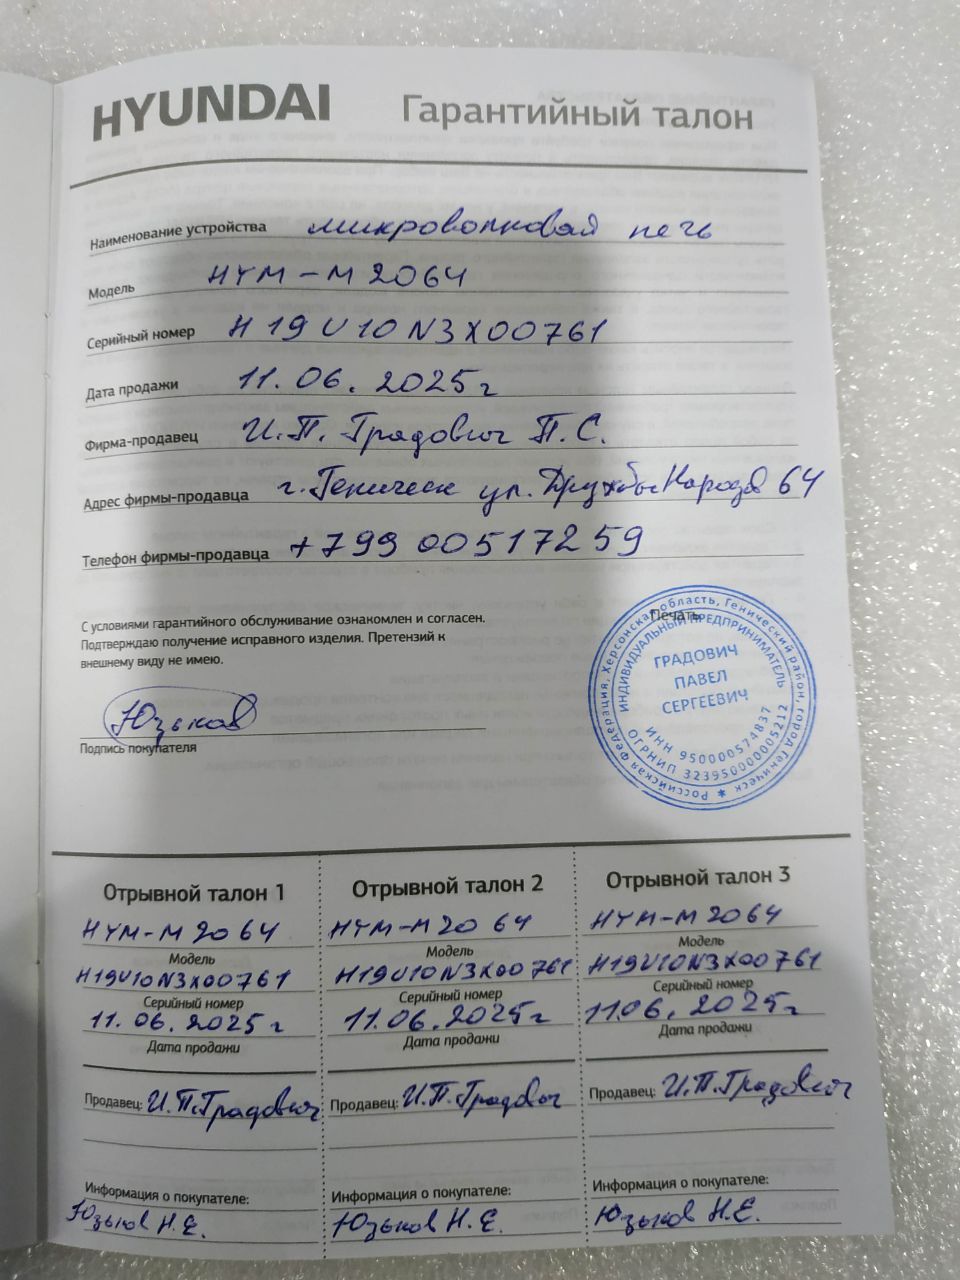 HYUNDAI Гарантийный талон
Наименование устройства микроволновая печь
Модель HYM-M2064
Серийный номер H19U10N3X00761
Дата продажи 11.06.2025г
Фирма-продавец И.П. Градович П.С.
Адрес фирмы-продавца г. Геническ ул. Дружбы Народов 64
Телефон фирмы-продавца +79900517259
С условиями гарантийного обслуживание ознакомлен и согласен.
Подтверждаю получение исправного изделия. Претензий к
внешнему виду не имею.
Печать
Российская Федерация, Херсонская область, Генический район, город Геническ
ИНДИВИДУАЛЬНЫЙ ПРЕДПРИНИМАТЕЛЬ
ГРАДОВИЧ
ПАВЕЛ
СЕРГЕЕВИЧ
ИНН 950000574837
ОГРНИП 323950000005212
Юзьков
Подпись покупателя
Отрывной талон 1
HYM-M2064
Модель
H19U10N3X00761
Серийный номер
11.06.2025г
Дата продажи
Продавец: И.П.Градович
Информация о покупателе:
Юзьков Н.Е.
Отрывной талон 2
HYM-M2064
Модель
H19U10N3X00761
Серийный номер
11.06.2025г
Дата продажи
Продавец: И.П.Градович
Информация о покупателе:
Юзьков Н.Е.
Отрывной талон 3
HYM-M2064
Модель
H19U10N3X00761
Серийный номер
11.06.2025г
Дата продажи
Продавец: И.П.Градович
Информация о покупателе:
Юзьков Н.Е.